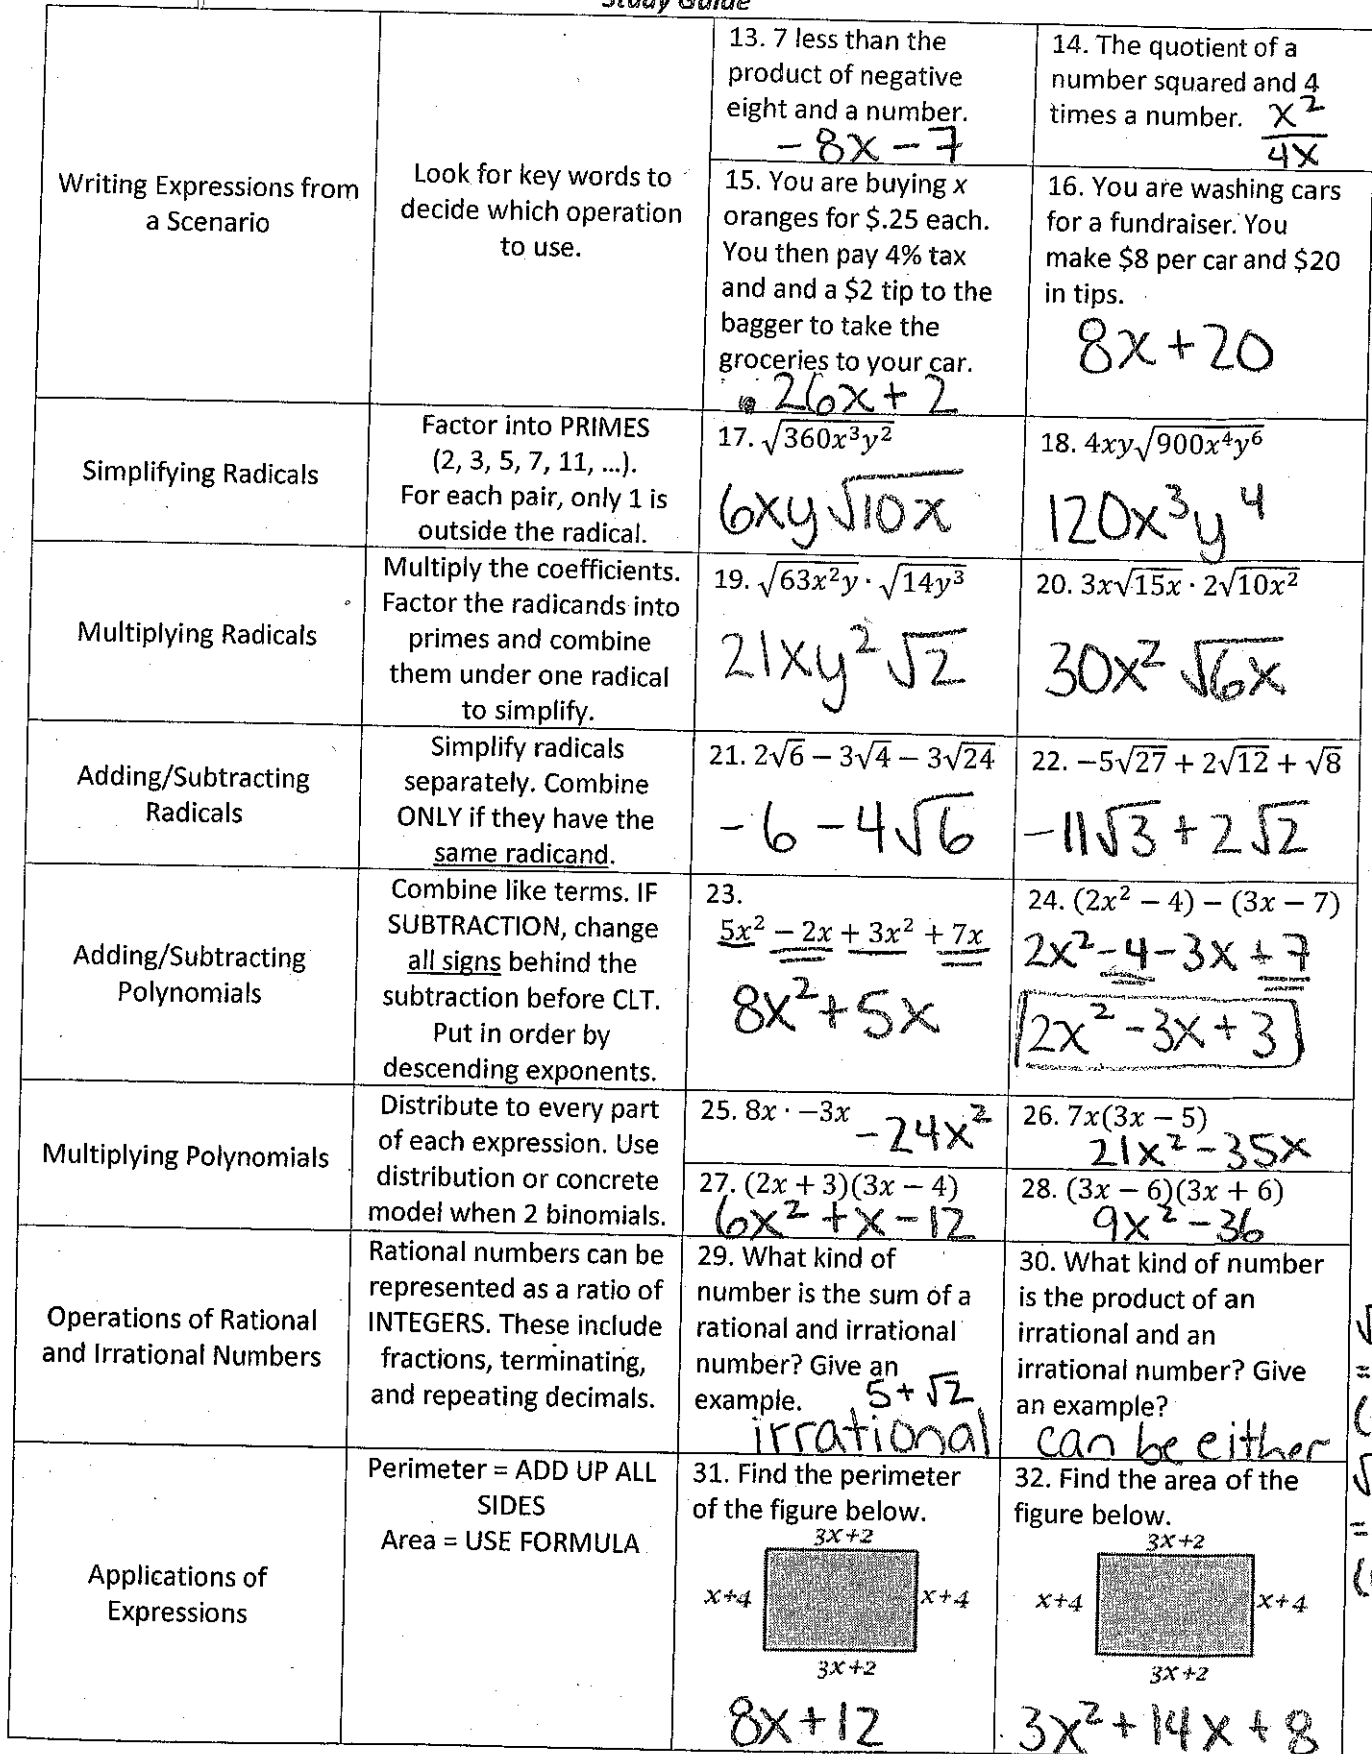 Study Guide
Writing Expressions from
a Scenario
Look for key words to
decide which operation
to use.
13. 7 less than the
product of negative
eight and a number.
-8x - 7
14. The quotient of a
number squared and 4
times a number. x²
4x
15. You are buying x
oranges for $.25 each.
You then pay 4% tax
and and a $2 tip to the
bagger to take the
groceries to your car.
.26x + 2
16. You are washing cars
for a fundraiser. You
make $8 per car and $20
in tips.
8x + 20
Simplifying Radicals
Factor into PRIMES
(2, 3, 5, 7, 11, ...).
For each pair, only 1 is
outside the radical.
17. √360x³y²
6xy√10x
18. 4xy√900x⁴y⁶
120x³y⁴
Multiplying Radicals
Multiply the coefficients.
Factor the radicands into
primes and combine
them under one radical
to simplify.
19. √63x²y · √14y³
21xy²√2
20. 3x√15x · 2√10x²
30x²√6x
Adding/Subtracting
Radicals
Simplify radicals
separately. Combine
ONLY if they have the
same radicand.
21. 2√6 − 3√4 − 3√24
-6 - 4√6
22. −5√27 + 2√12 + √8
-11√3 + 2√2
Adding/Subtracting
Polynomials
Combine like terms. IF
SUBTRACTION, change
all signs behind the
subtraction before CLT.
Put in order by
descending exponents.
23.
5x² − 2x + 3x² + 7x
8x² + 5x
24. (2x² − 4) − (3x − 7)
2x² - 4 - 3x + 7
2x² - 3x + 3
Multiplying Polynomials
Distribute to every part
of each expression. Use
distribution or concrete
model when 2 binomials.
25. 8x · −3x -24x²
26. 7x(3x − 5)
21x² - 35x
27. (2x + 3)(3x − 4)
6x² + x - 12
28. (3x − 6)(3x + 6)
9x² - 36
Operations of Rational
and Irrational Numbers
Rational numbers can be
represented as a ratio of
INTEGERS. These include
fractions, terminating,
and repeating decimals.
29. What kind of
number is the sum of a
rational and irrational
number? Give an
example. 5 + √2
irrational
30. What kind of number
is the product of an
irrational and an
irrational number? Give
an example?
can be either
Applications of
Expressions
Perimeter = ADD UP ALL
SIDES
Area = USE FORMULA
31. Find the perimeter
of the figure below.
3x+2
x+4 x+4
3x+2
8x + 12
32. Find the area of the
figure below.
3x+2
x+4 x+4
3x+2
3x² + 14x + 8